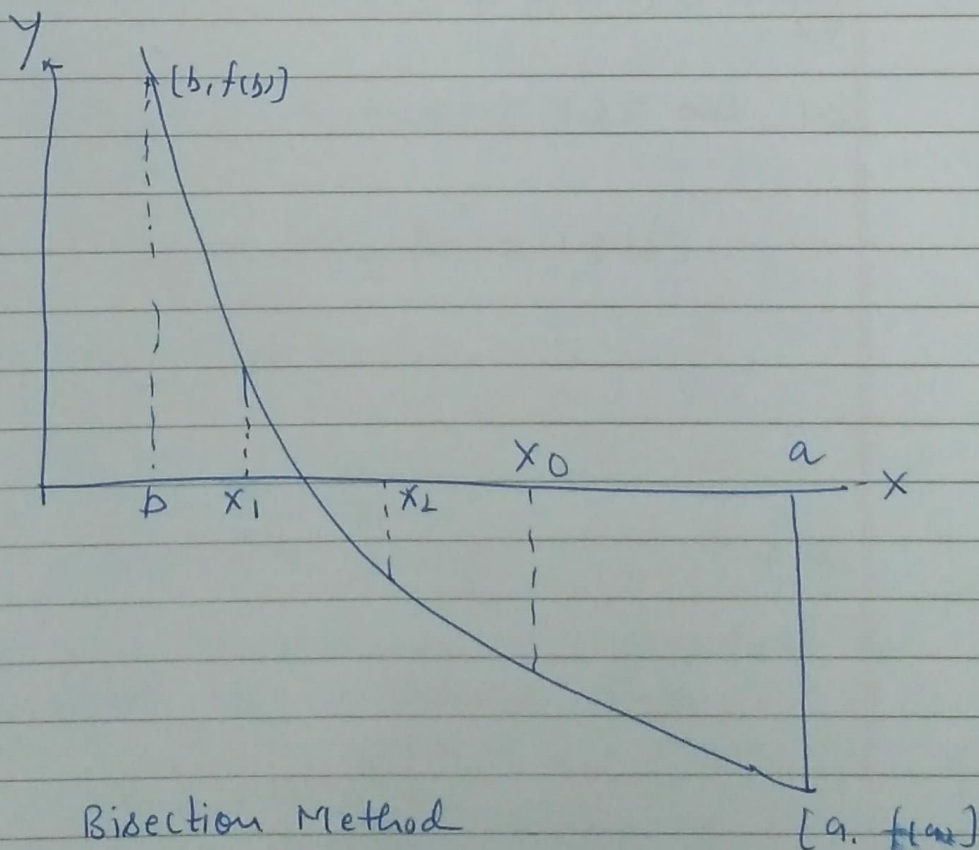 Y
[b, f(b)]
X0
a
b
X1
X2
X
Bisection Method
[a, f(a)]